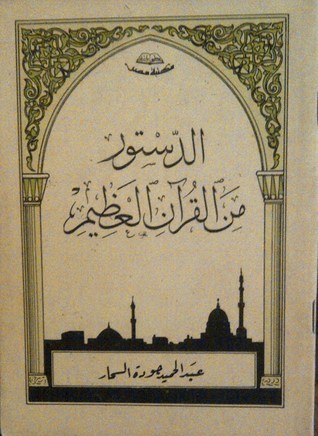 مكتبة مصر
الدّستور
مِنَ القُرآنِ العَظِيمْ
عبد الحميد جودة السحار